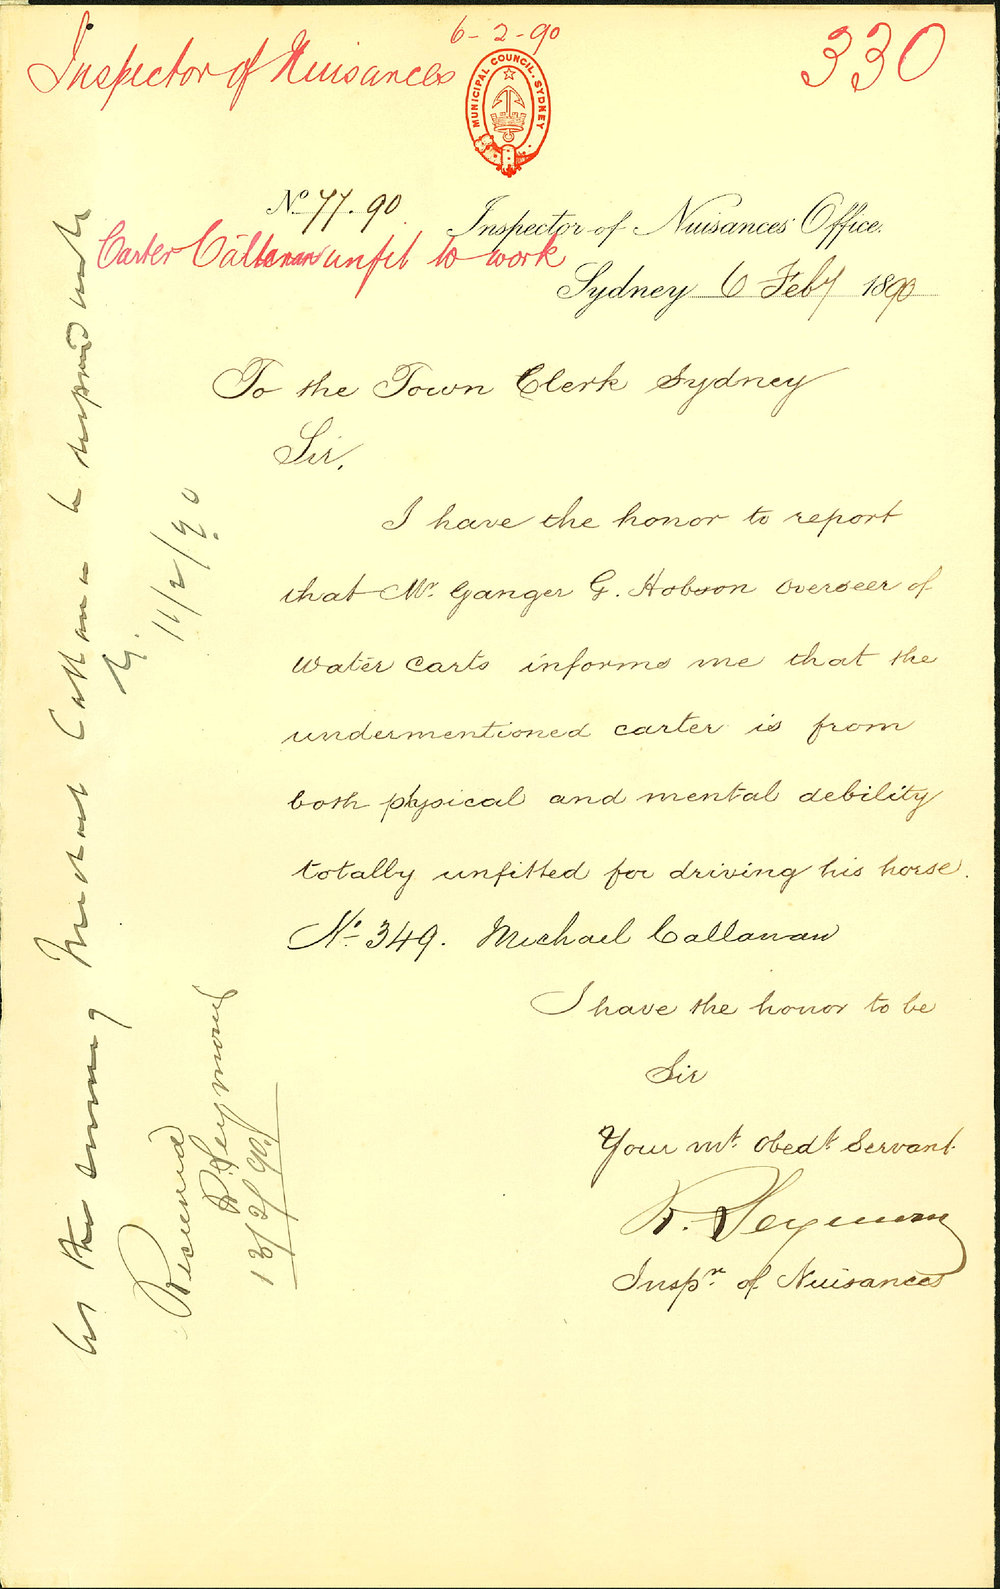 6-2-90
Inspector of Nuisances
330
MUNICIPAL COUNCIL. SYDNEY
No 77.90
Inspector of Nuisances' Office.
Carter Callanan unfit to work
Sydney 6 Feby 1890
To the Town Clerk Sydney
Sir,
I have the honor to report
that Mr. Ganger G. Hobson overseer of
Water Carts informs me that the
undermentioned carter is from
both physical and mental debility
totally unfitted for driving his horse.
No 349. Michael Callanan
I have the honor to be
Sir
Your mt. obedt. Servant
R. Seymour
Inspr. of Nuisances
Michael Callanan to
11/2/90
Received
R. Seymour
13/2/90